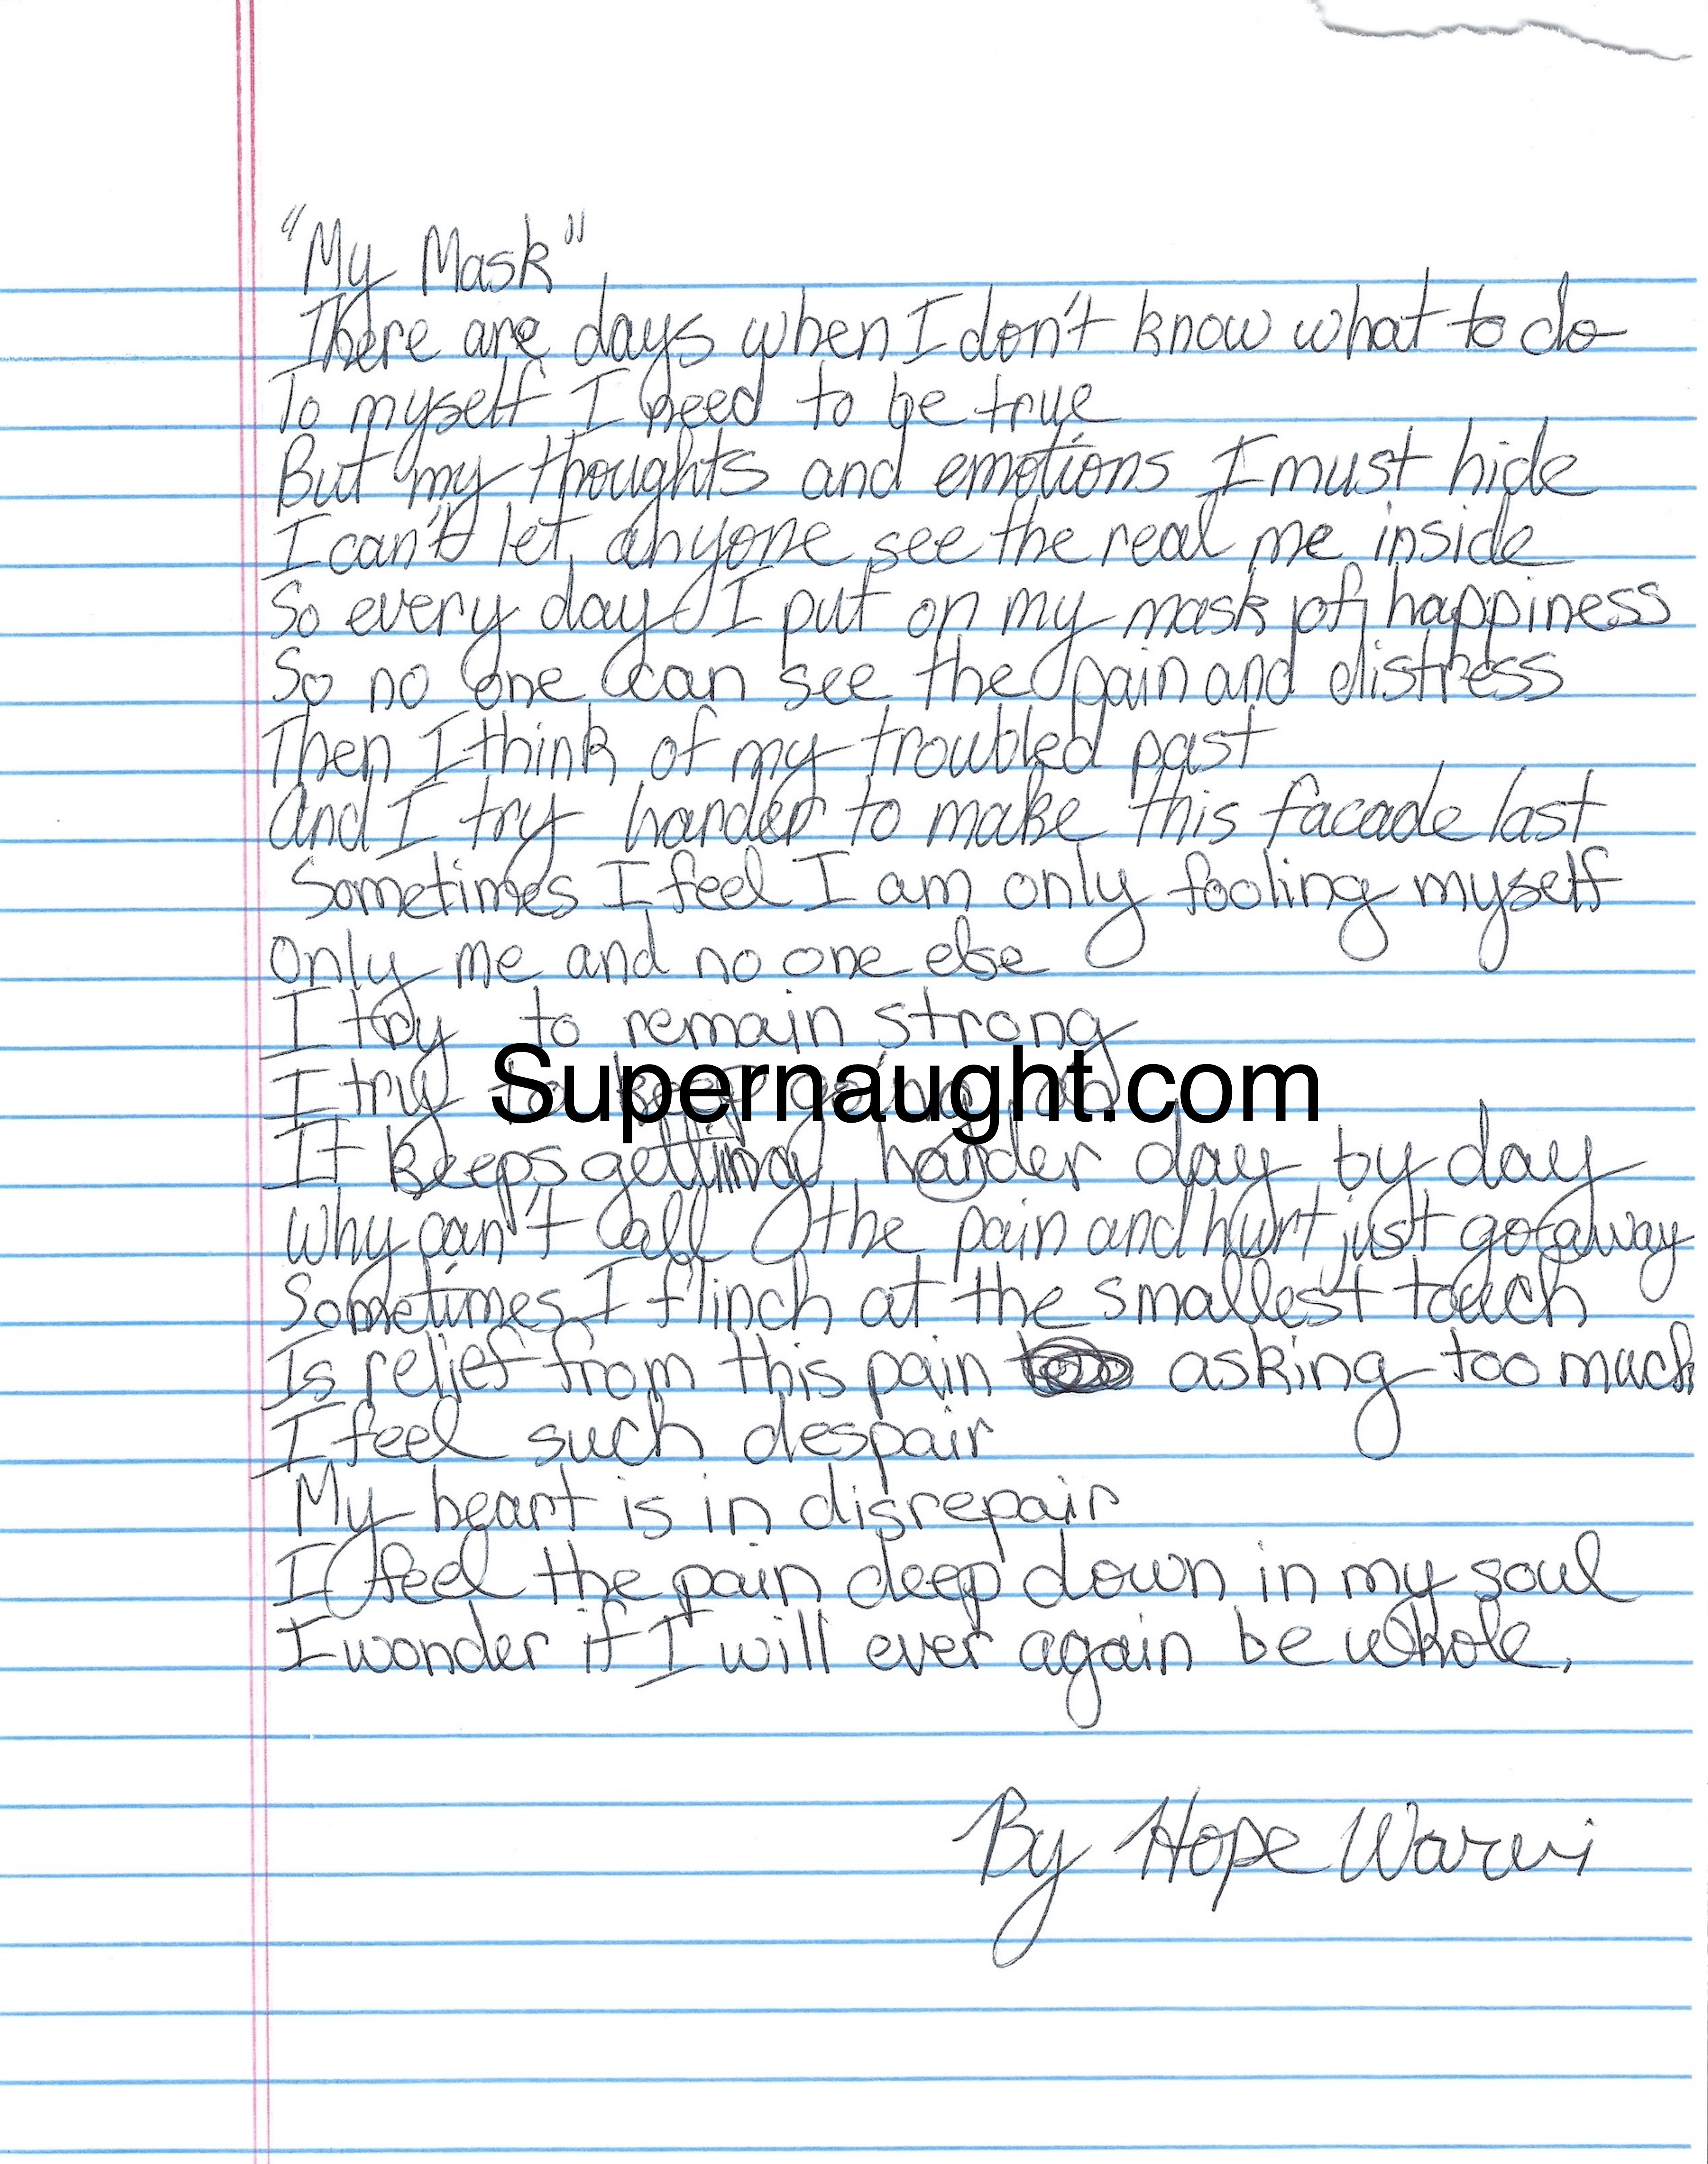 "My Mask"
There are days when I don't know what to do
To myself I need to be true
But my thoughts and emotions I must hide
I can't let anyone see the real me inside
So every day I put on my mask of happiness
So no one can see the pain and distress
Then I think of my troubled past
And I try harder to make this facade last
Sometimes I feel I am only fooling myself
Only me and no one else
I try to remain strong
I try to keep going on
Supernaught.com
It keeps getting harder day by day
Why can't all the pain and hurt just go away
Sometimes I flinch at the smallest touch
Is relief from this pain asking too much
I feel such despair
My heart is in disrepair
I feel the pain deep down in my soul
I wonder if I will ever again be whole.
By Hope